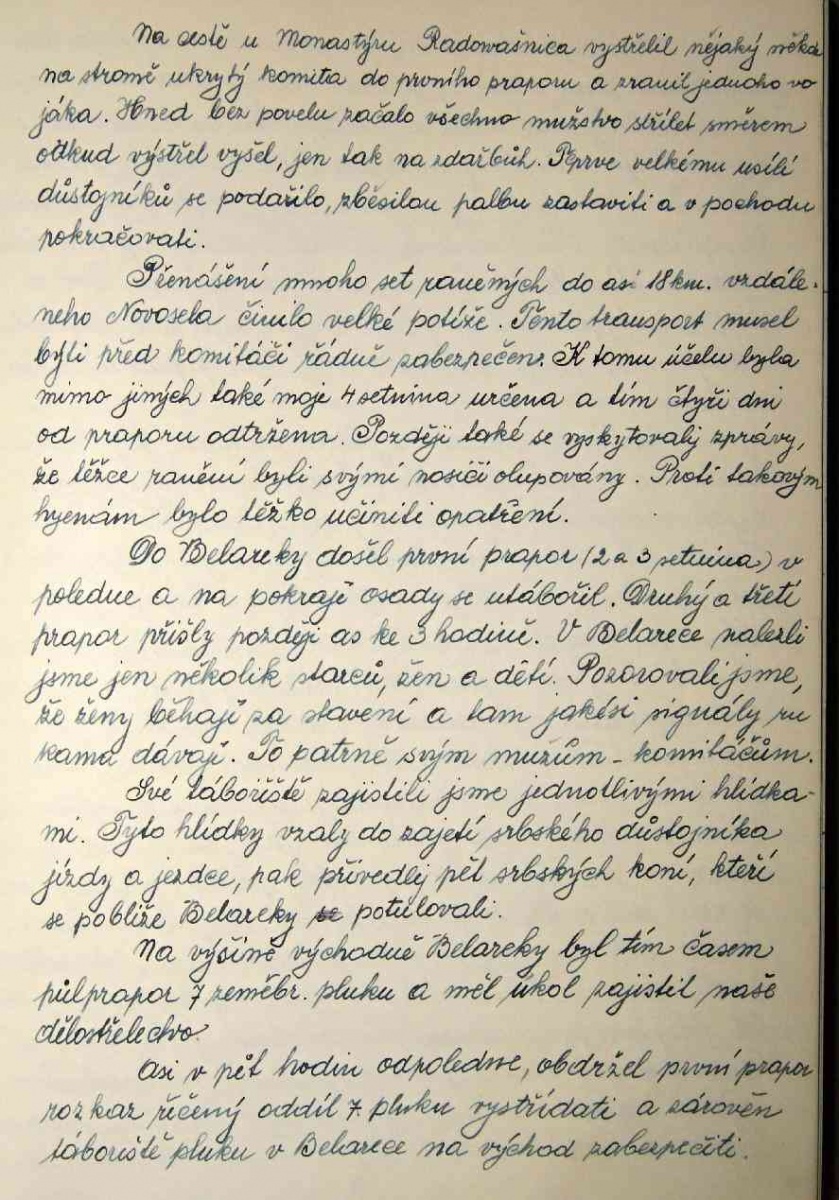 Na cestě u Monastýru Radowašnica vystřelil nějaký někde
na stromě ukrytý komita do prvního praporu a zranil jednoho vo
jáka. Hned bez povelu začalo všechno mužstvo střílet směrem
odkud výstřel vyšel, jen tak na zdařbůh. Teprve velkému usílí
důstojníků se podařilo, zběsilou palbu zastaviti a v pochodu
pokračovati.
Přenášení mnoho set raněných do asi 18 km. vzdále-
neho Novosela činilo velké potíže. Tento transport musel
býti před komitáči řádně zabezpečen. K tomu účelu byla
mimo jiných také moje 4 setnina určena a tím čtyři dni
od praporu odtržena. Později také se vyskytovaly zprávy,
že těžce ranění byli svými nosiči olupovány. Proti takovým
hyenám bylo těžko učiniti opatření.
Do Belareky došel první prapor (2 a 3 setnina) v
poledne a na pokraji osady se utábořil. Druhý a třetí
prapor přišly později as ke 3 hodině. V Belarece nalezli
jsme jen několik starců, žen a dětí. Pozorovali jsme,
že ženy běhají za stavení a tam jakési signály ru
kama dávají. To patrně svým mužům - komitáčům.
Své tábořiště zajistili jsme jednotlivými hlídka-
mi. Tyto hlídky vzaly do zajetí srbského důstojníka
jízdy a jezdce, pak přivedly pět srbských koní, kteří
se poblíže Belareky se potulovali.
Na výšině východně Belareky byl tím časem
půlprapor 7 zeměbr. pluku a měl úkol zajistit naše
dělostřelectvo.
Asi v pět hodin odpoledne, obdržel první prapor
rozkaz řečený oddíl 7. pluku vystřídati a zárověn
táboriště pluku v Belarece na východ zabezpečiti.